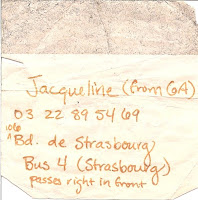 Jacqueline (from GA)
03 22 89 54 69
106
^Bd. de Strasbourg
Bus 4 (Strasbourg)
passes right in front